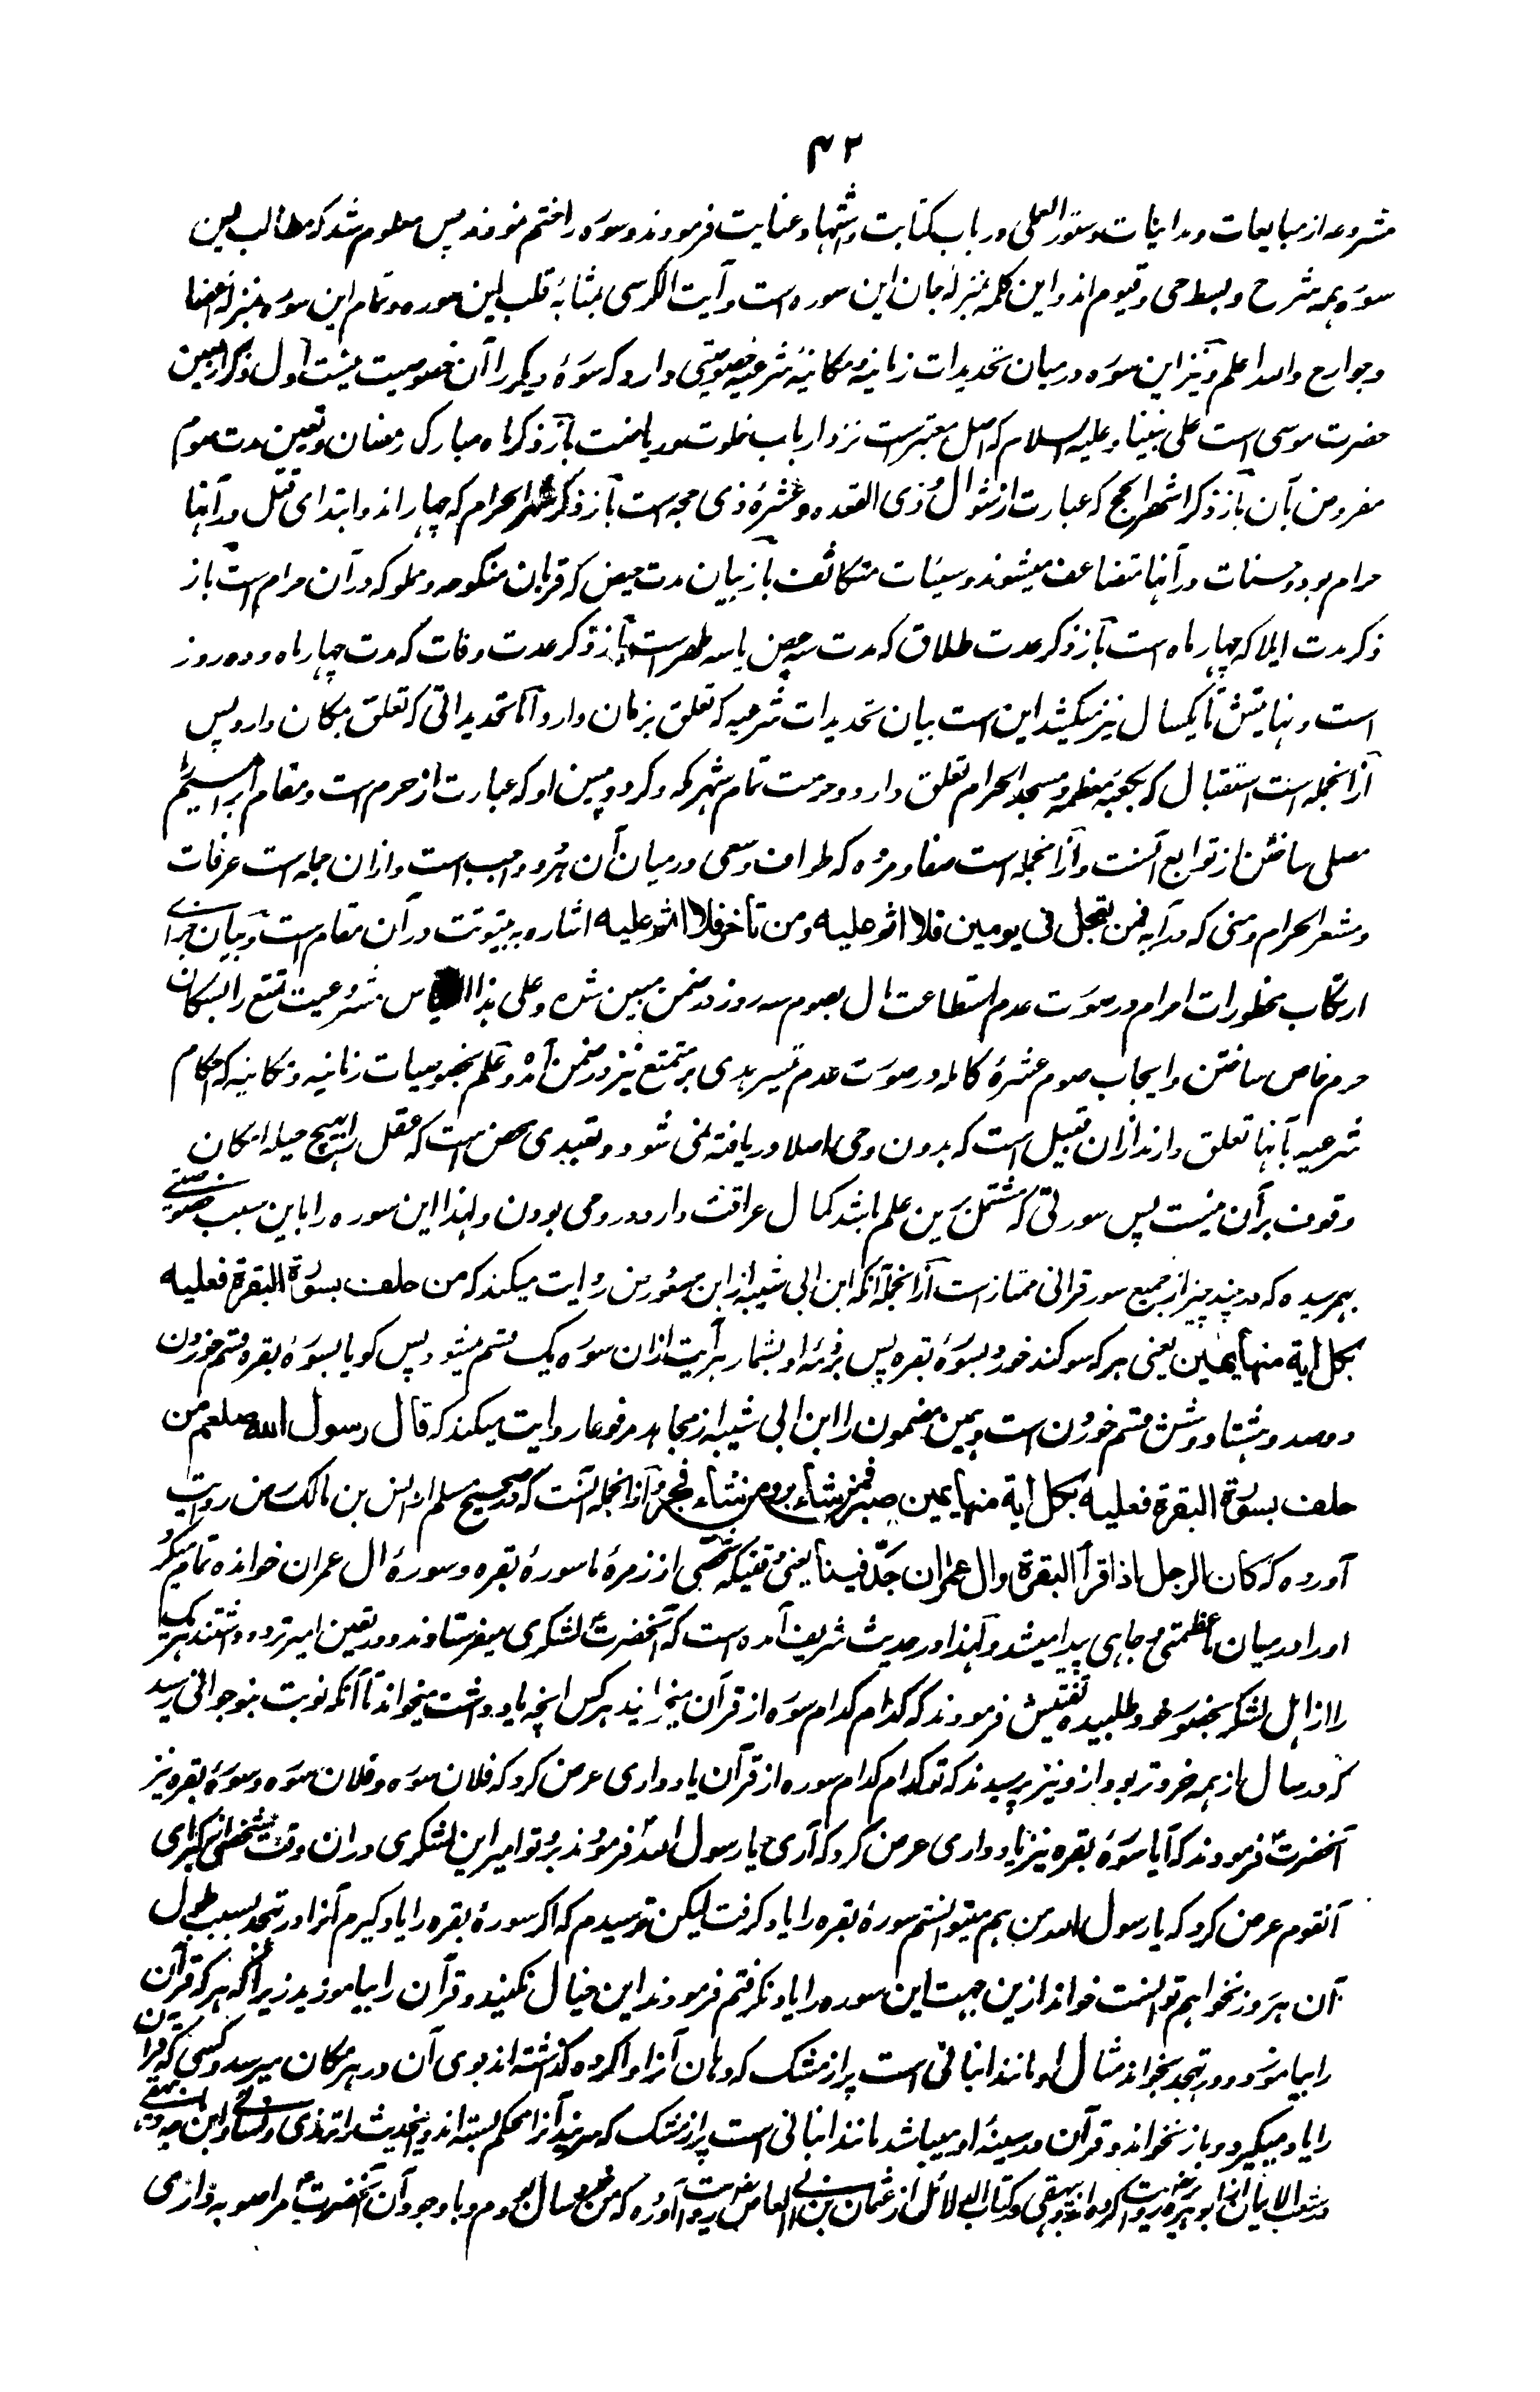 ۴۲
مشروعه از مبایعات و مداینات دستور العملی در باب کتابت و اشتهاد عنایت فرمودند و سوره را ختم نمودند پس معلوم شد که مطالب این
سوره همه شرح و بسط حی و قیوم اند و این کلمه بمنزله جان این سوره است و آیت الکرسی بمثابه قلب این سوره و تمام این سوره بمنزله اعضا
و جوارح والله اعلم و نیز این سوره در میان تحدیدات زمانیه و مکانیه شرعیه خصوصیتی دارد که سورهٔ دیگر را آن خصوصیت نیست اول ذکر اربعین
حضرت موسی است علی نبینا و علیه السلام که اصل معتبر است نزد ارباب خلوت و ریاضت باز ذکر ماه مبارک رمضان و تعین مدت صوم
مفروض بآن باز ذکر اشهر الحج که عبارت از شوال و ذی القعده و عشرهٔ ذی حجه است باز ذکر اشهر الحرام که چهار اند و ابتدای قتل در آنها
حرام بود و حسنات در آنها متضاعف میشوند و سیئات متکاثف باز بیان مدت حیض که قربان منکوحه و مملوکه در آن حرام است باز
ذکر مدت ایلا که چهار ماه است باز ذکر عدت طلاق که مدت سه حیض یا سه طهر است باز ذکر عدت وفات که مدت چهار ماه و ده روز
است و نهایتش تا یکسال نیز میکشید این است بیان تحدیدات شرعیه که تعلق بزمان دارد اما تحدیداتی که تعلق بمکان دارد پس
از آنجمله است استقبال که بکعبه معظمه و مسجد الحرام تعلق دارد و حرمت تمام شهر مکه و گرد و پیش او که عبارت از حرم است و مقام ابراهیم را
مصلی ساختن از توابع آنست و از آنجمله است صفا و مروه که طواف و سعی در میان آن هر دو واجب است و ازان جمله است عرفات
و مشعر الحرام و منی که در آیه فمن تعجل فی یومین فلا اثم علیه ومن تأخر فلا اثم علیه اشاره به بیتوتت در آن مقام است و بیان جزای
ارتکاب محظورات احرام در صورت عدم استطاعت مال بصوم سه روز در ضمن مبین شده و علی هذا القیاس مشروعیت تمتع را بسکان
حرم خاص ساختن و ایجاب صوم عشرهٔ کامله در صورت عدم تیسر هدی بر متمتع نیز در ضمن آمده و علم بخصوصیات زمانیه و مکانیه که احکام
شرعیه بآنها تعلق دارند ازان قبیل است که بدون وحی اصلا دریافته نمی شود و تعبدی محض است که عقل را بهیچ حیله امکان
وقوف بر آن نیست پس سورتی که مشتمل برین علم باشد کمال عراقت دارد در وحی بودن و لهذا این سوره را باین سبب خصوصیتی
بهم رسیده که در چند چیز از جمیع سور قرانی ممتاز است از آنجمله آنکه ابن ابی شیبه از ابن مسعود رض روایت میکند که من حلف بسورة البقرة فعلیه
بکل ایة منها یمین یعنی هر که سوگند خورد بسورهٔ بقره پس بر ذمهٔ او بشمار هر آیت ازان سوره یک قسم میشود پس گویا بسورهٔ بقره قسم خوردن
دوصد و هشتاد و شش قسم خوردن است و همین مضمون را ابن ابی شیبه از مجاهد مرفوعا روایت میکند که قال رسول الله صلعم من
حلف بسورة البقرة فعلیه بکل ایة منها یمین صبر فمن شاء بر ومن شاء فجر و از آنجمله آنست که در صحیح مسلم از انس بن مالک رض روایت
آورده که کان الرجل اذا قرأ البقرة وال عمران جدّ فینا یعنی وقتیکه شخصی از زمرهٔ ما سورهٔ بقره و سورهٔ ال عمران خوانده تمام میکرد
او را در میان ما عظمتی و جاهی پیدا میشد و لهذا در حدیث شریف آمده است که آنحضرتؐ لشکری میفرستادند و در تعین امیر تردد داشتند هر یک
را از اهل لشکر بحضور خود طلبیده تفتیش فرمودند که کدام کدام سوره از قرآن میخوانید هر کس آنچه یاد داشت میخواند تا آنکه نوبت بنوجوانی رسید
که در سال از همه خردتر بود از و نیز پرسیدند که تو کدام کدام سوره از قرآن یاد داری عرض کرد که فلان سوره و فلان سوره و سورهٔ بقره نیز
آنحضرتؐ فرمودند که آیا سورهٔ بقره نیز یاد داری عرض کرد که آری یا رسول الله فرمودند برو تو امیر این لشکری دران وقت شخصی از کبرای
آنقوم عرض کرد که یا رسول الله من هم میتوانستم سورهٔ بقره را یاد گرفت لیکن ترسیدم که اگر سورهٔ بقره را یاد گیرم آنرا در تهجد بسبب طول
آن هر روز نخواهم توانست خواند ازین جهت این سوره را یاد نگرفتم فرمودند این خیال نکنید و قرآن را بیاموزید زیرا که هر که قرآن
را بیاموزد و در تهجد بخواند مثال او مانند انبانی است پر از مشک که دهان آنرا وا کرده گذاشته اند بوی آن در هر مکان میرسد و کسی که قرآن
را یاد میگیرد و باز نخواند و قرآن در سینهٔ او میباشد مانند انبانی است پر از مشک که سر بند آنرا محکم بسته اند و اینحدیث را ترمذی و نسائی و ابن ماجه و بیهقی
در شعب الایمان از ابو هریره روایت کرده اند و بیهقی در کتاب الدلائل از عثمان بن ابی العاص رض روایت آورده که من خرد سال بودم و با وجود آن آنحضرتؐ مرا صوبه داری